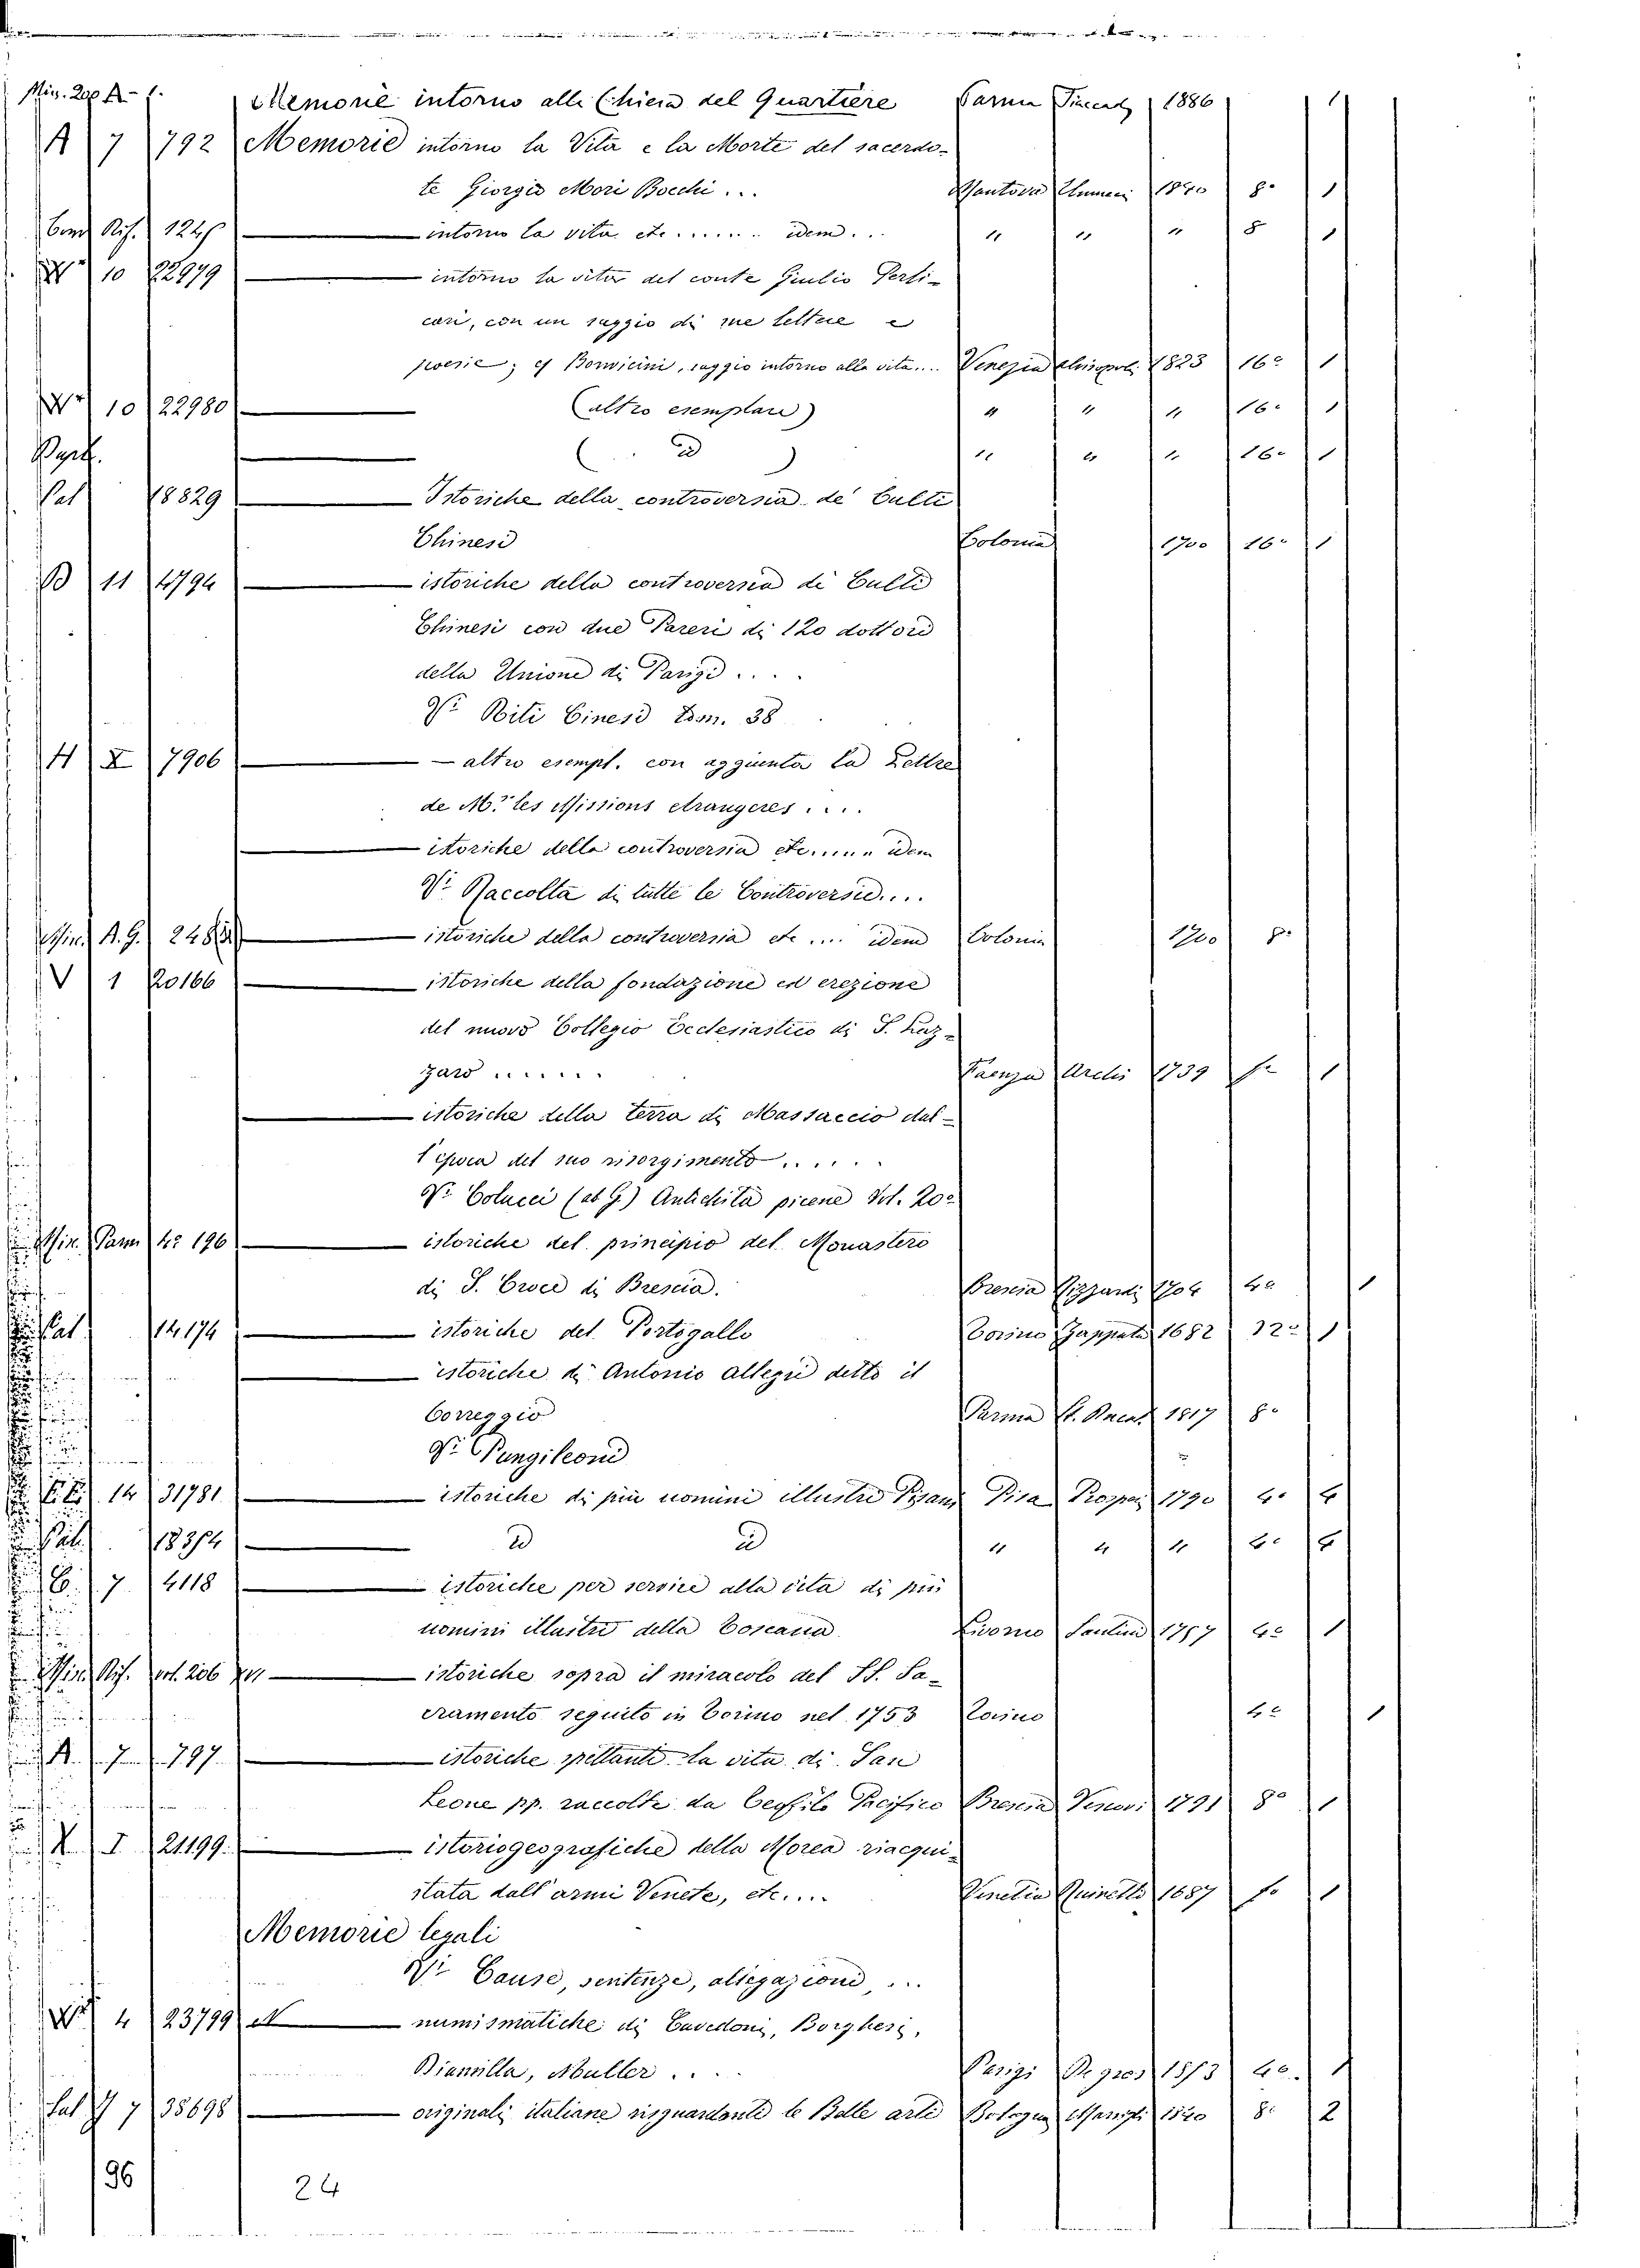 Memorie intorno alla Chiesa del Quartiere Parma 1886 1
A 7 792 Memorie intorno la Vita e la Morte del sacerdo-
te Giorgio Mori Bocchi ... Mantova 1840 8° 1
1247 — intorno la vita etc ....... idem ... " " " 8 1
10 22979 — intorno la vita del conte Giulio Perti-
cari, con un saggio di sue lettere e
poesie; ej Bonvicini, saggio intorno alla vita.... Venezia 1823 16° 1
10 22980 — (altro esemplare) " " " 16° 1
— ( id ) " " " 16° 1
Pal 18829 — Istoriche della controversia de' Culti
Chinesi Colonia 1700 16° 1
B 11 4794 — istoriche della controversia di Culti
Chinesi con due Pareri di 120 dottori
della Unione di Parigi ....
V. Riti Cinesi Tom. 38
H X 7906 — — altro esempl. con aggiunta la Lettre
de M.rs les Missions étrangeres ....
— istoriche della controversia etc..... idem
V. Raccolta di tutte le Controversie....
Min. A.G. — istoriche della controversia etc .... idem Colonia 1700 8°
V 1 20166 — istoriche della fondazione ed erezione
del nuovo Collegio Ecclesiastico di S. Laz-
zaro ...... Faenza Archi 1739 1
— istoriche della terra di Massaccio dal-
l'epoca del suo risorgimento .....
V. Colucci (ab G.) Antichità picene Vol. 20°
Min. Parm 4° 196 — istoriche del principio del Monastero
di S. Croce di Brescia. Brescia Rizzardi 1704 4° 1
Pal 14174 — istoriche del Portogallo Torino Zappata 1682 12° 1
— istoriche di Antonio Allegri detto il
Correggio Parma 1817 8°
V. Pungileoni
14 31781 — istoriche di più uomini illustri Pisani Pisa Prosperi 1790 4° 4
Pal. 18374 — id id " " " 4° 4
B. 7 4118 — istoriche per servire alla vita di più
uomini illustri della Toscana Livorno 1757 4° 1
Min. Rif. vol. 206 — istoriche sopra il miracolo del SS. Sa-
cramento seguito in Torino nel 1753 Torino 4° 1
A. 7 797 — istoriche spettanti la vita di San
Leone pp. raccolte da Teofilo Pacifico Brescia Vescovi 1791 8° 1
X I 21199. — istoriogeografiche della Morea riacqui-
stata dall'armi Venete, etc.... Venetia 1687 f° 1
Memorie legali
V. Cause, sentenze, allegazioni, ...
4 23799 M — numismatiche di Cavedoni, Borghesi,
Biamilla, Muller .... Parigi 1873 4° 1
Pal 7 38698 — originali italiane risguardanti le Belle arti Bologna Marsigli 1840 8° 2
96
24